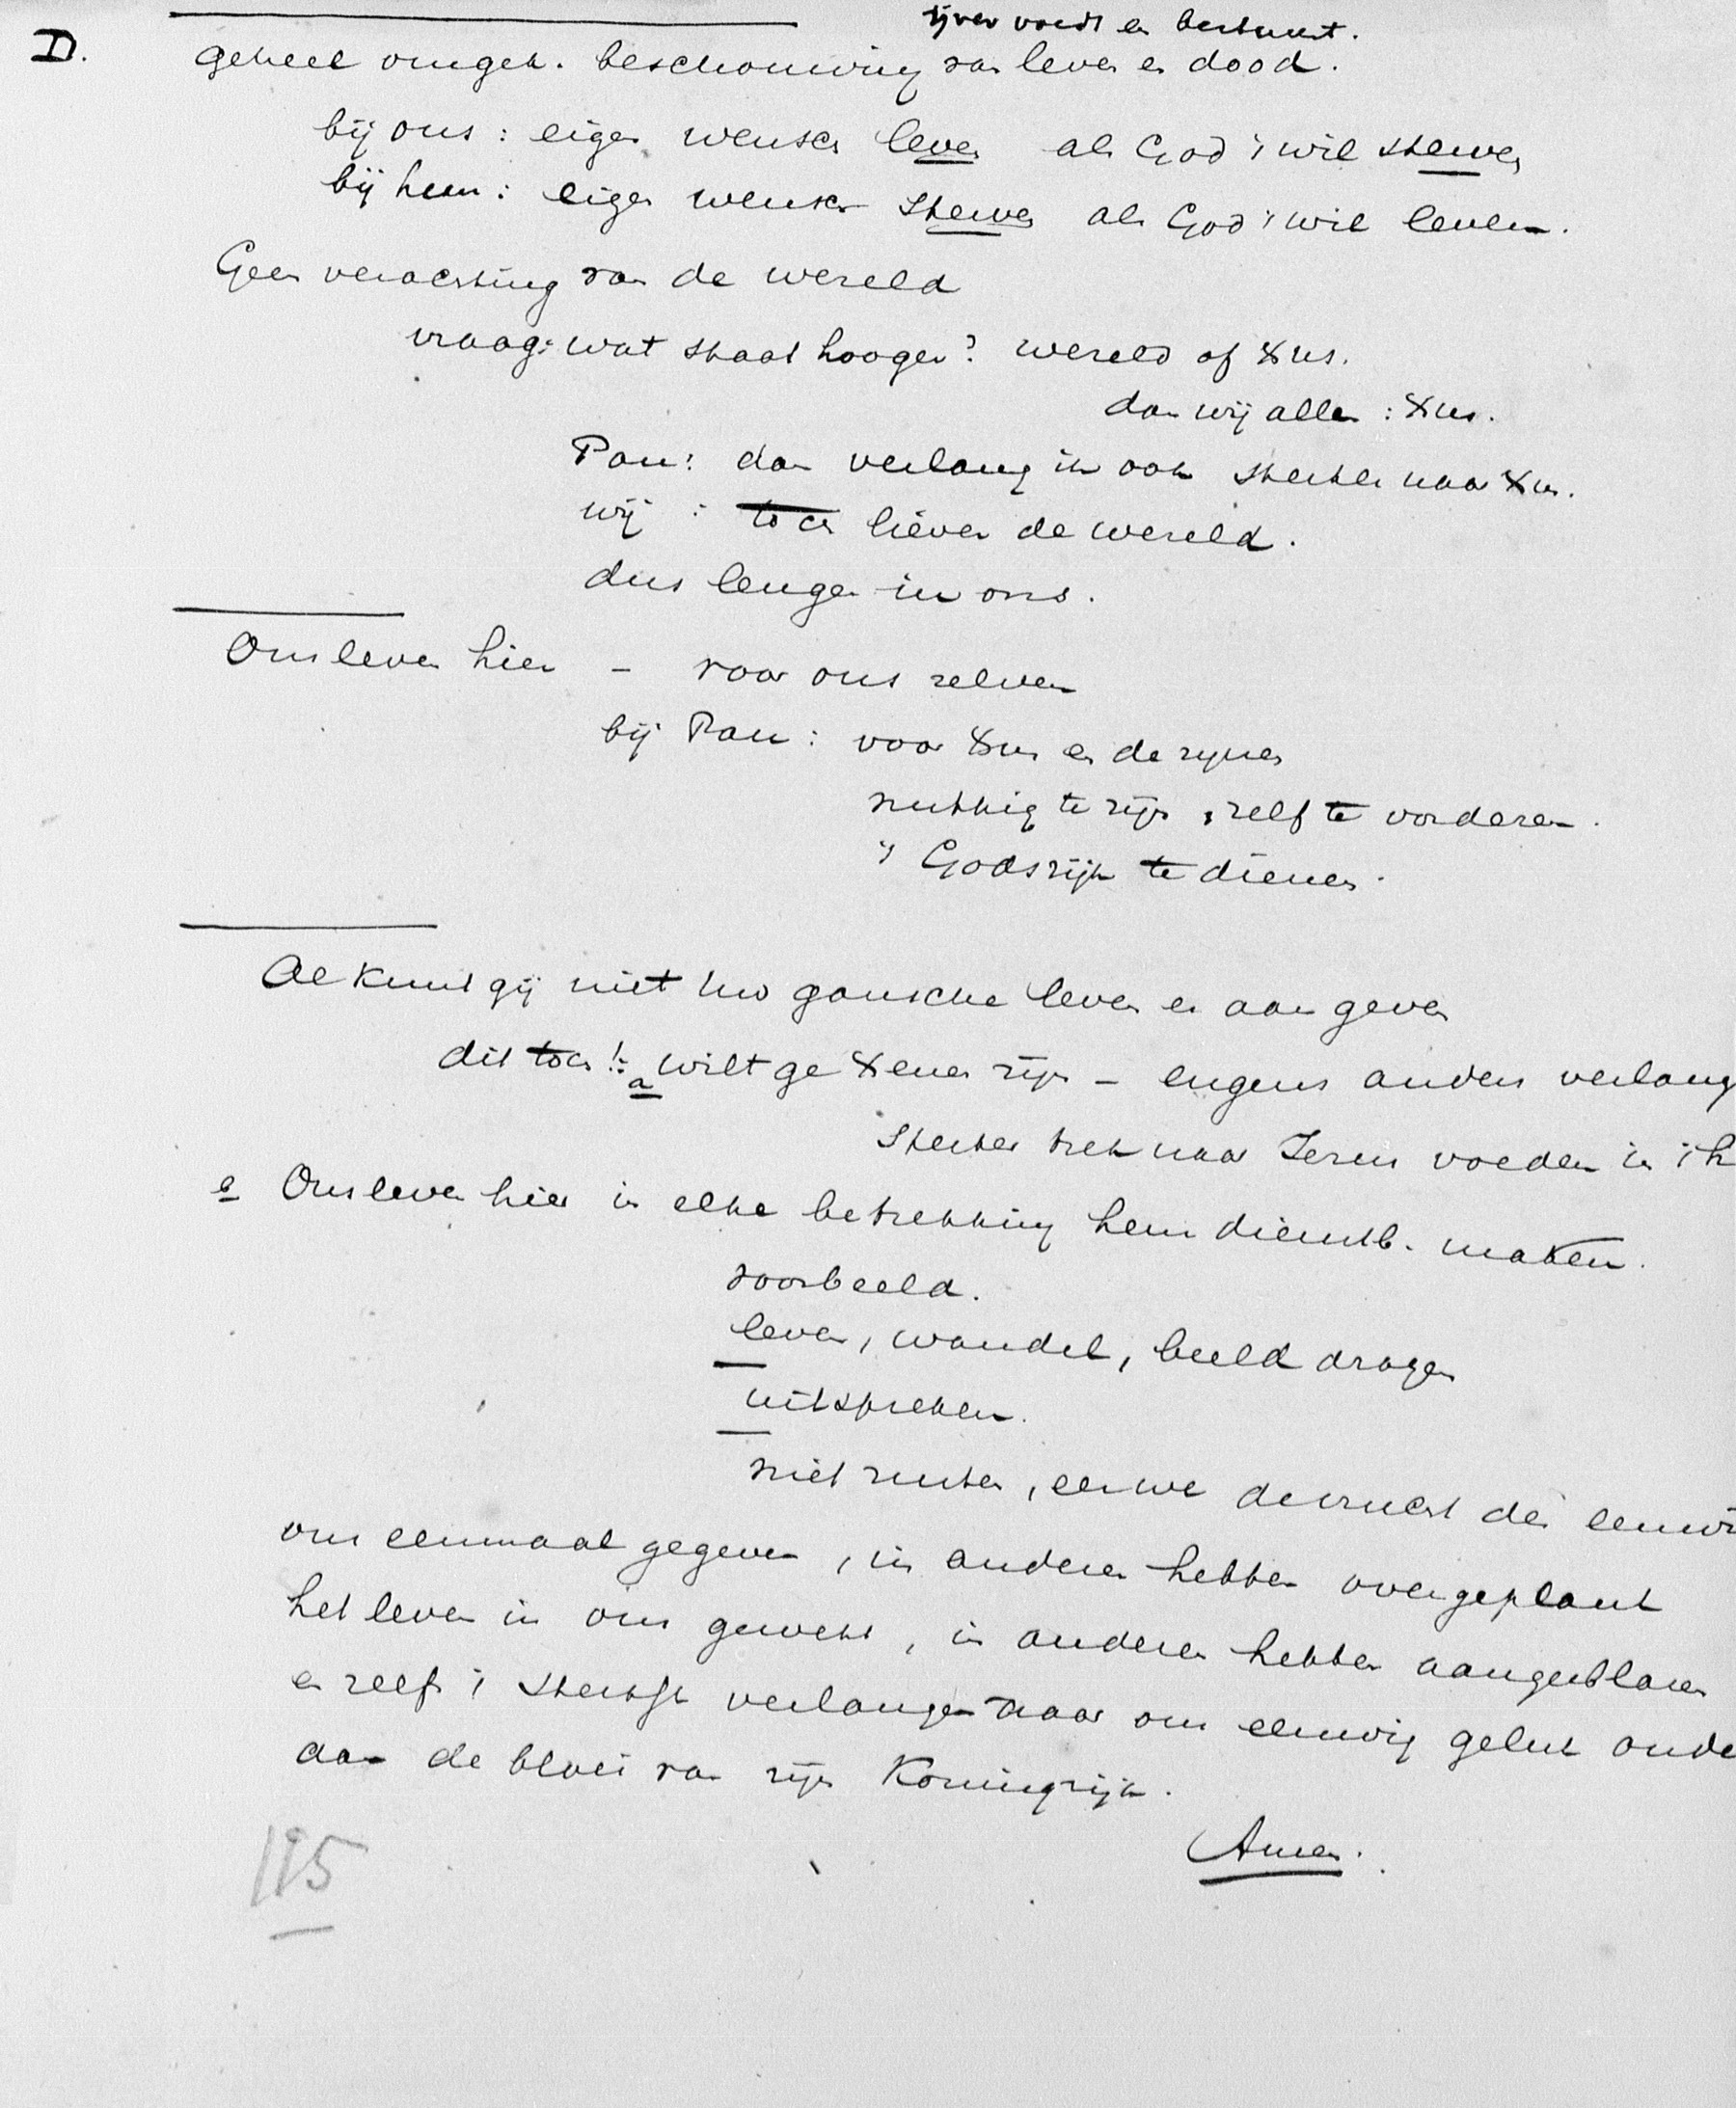 ijver voedt en bestuurt.
D.
geheel omgek. beschouwing van leven en dood.
bij ons: eigen wensch leven als God 't wil sterven
bij hem: eigen wensch sterven als God 't wil leven.
Geen verachting van de wereld
vraag: wat staat hooger? wereld of Xus.
dan wij allen: Xus.
Pau: dan verlang ik ook sterker naar Xus.
wij: toch liever de wereld.
dus leugen in ons.
Ons leven hier - voor ons zelven
bij Pau: voor Xus en de zijnen
nuttig te zijn, zelf te vorderen.
't Godsrijk te dienen.
Al kunt gij niet uw gansche leven er aan geven
dit toch!: a wilt ge Xenen zijn - ergens anders verlang
sterker trek naar Jezus voeden in 't h
b Ons leven hier in elke betrekking hem dienstb. maken.
voorbeeld.
leven, wandel, beeld dragen
uitspreken.
niet rusten, eer we de vrucht des eeuwi
ons eenmaal gegeven, in anderen hebben overgeplant
het leven in ons gewekt, in anderen hebben aangeblazen
en zelf 't sterkst verlangen naar ons eeuwig geluk onde
aan de bloei van zijn Koningrijk.
Amen.
115